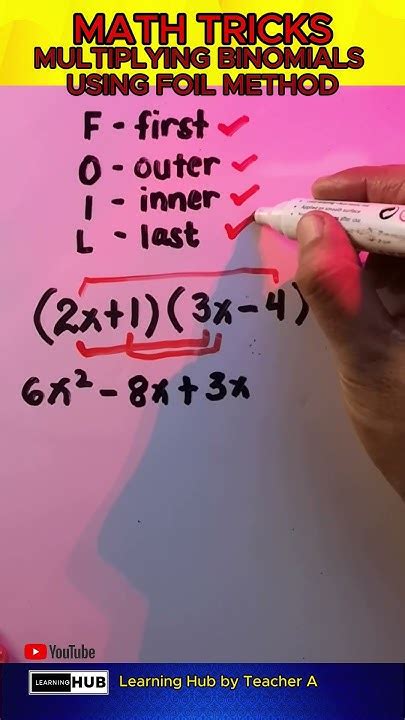 MATH TRICKS
MULTIPLYING BINOMIALS
USING FOIL METHOD
F - first ✓
O - outer ✓
I - inner ✓
L - last ✓
(2x+1)(3x-4)
6x² - 8x + 3x
YouTube
LEARNING HUB
Learning Hub by Teacher A